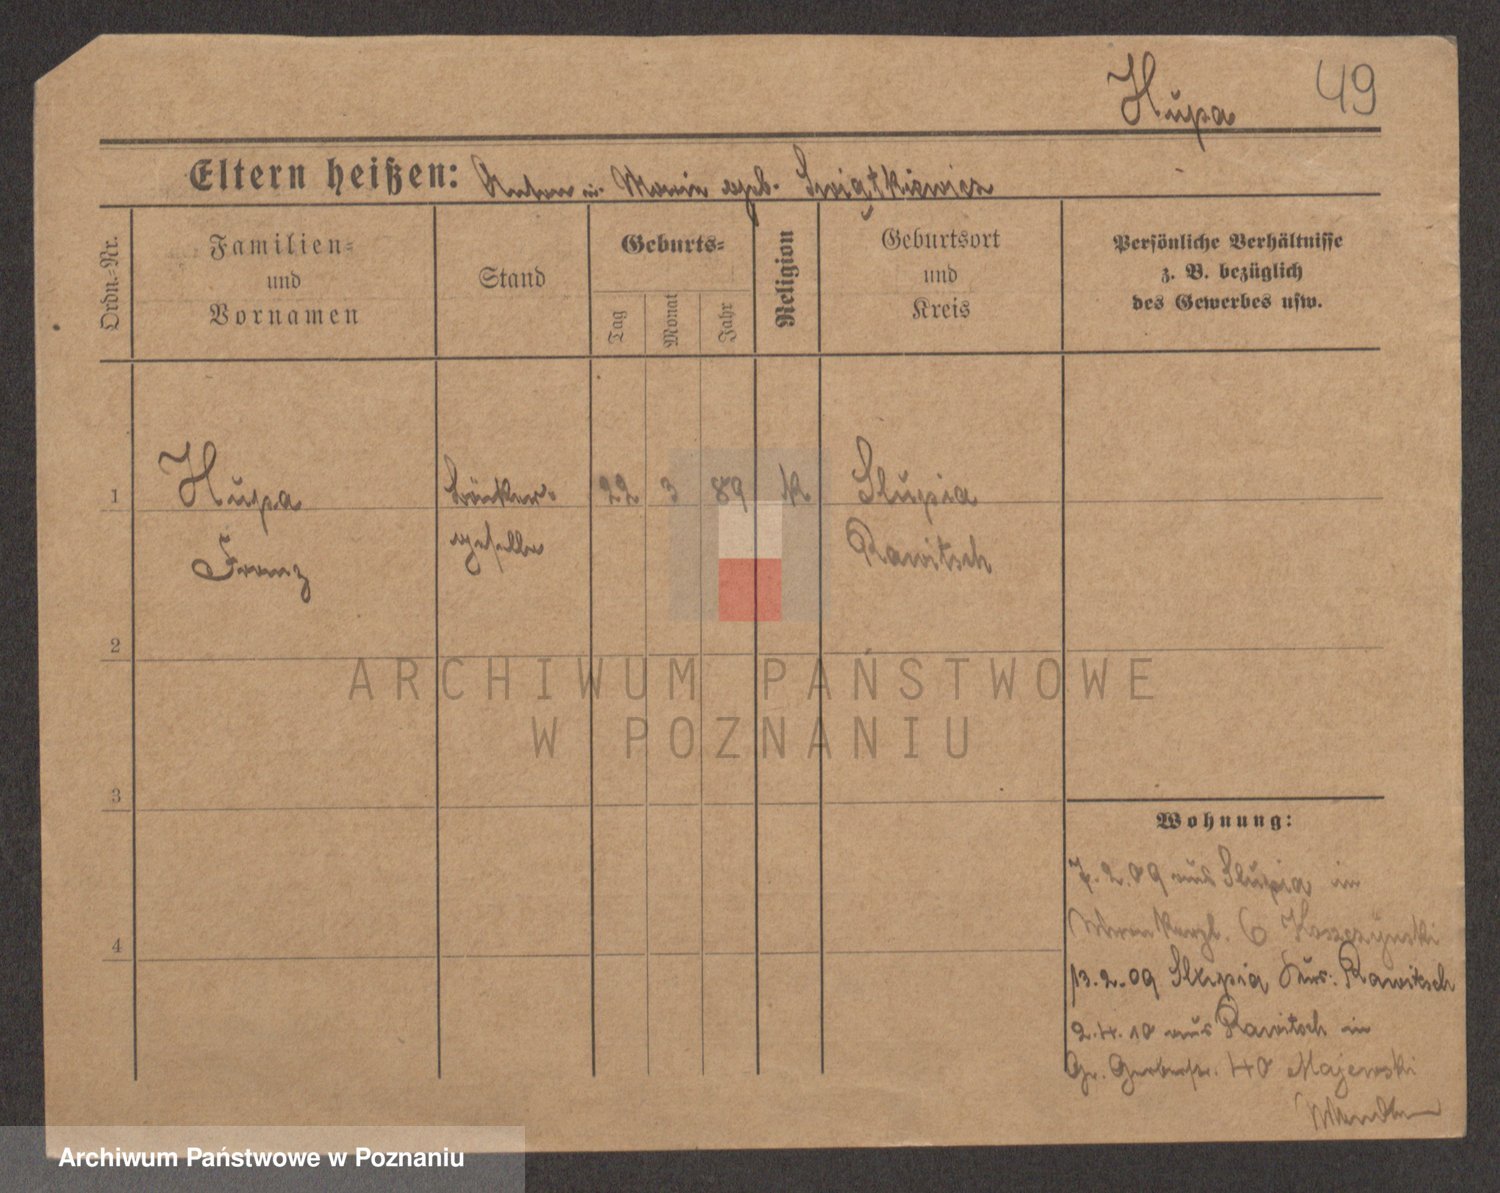 Hupa 49
Eltern heißen: Anton u. Marie geb. Swiątkiewicz
Ordn.-Nr.
Familien-
und
Vornamen
Stand
Geburts-
Tag
Monat
Jahr
Religion
Geburtsort
und
Kreis
Persönliche Verhältnisse
z. B. bezüglich
des Gewerbes usw.
1 Hupa Bäcker- 22 3 89 k Slupia
Franz geselle Rawitsch
2
3
4
Wohnung:
7.2.09 aus Slupia in
6 Koszczynski
13.2.09 Slupia Krs. Rawitsch
2.4.10 aus Rawitsch in
Gr. Gerberstr. 40 Majewski
ARCHIWUM PAŃSTWOWE
W POZNANIU
Archiwum Państwowe w Poznaniu